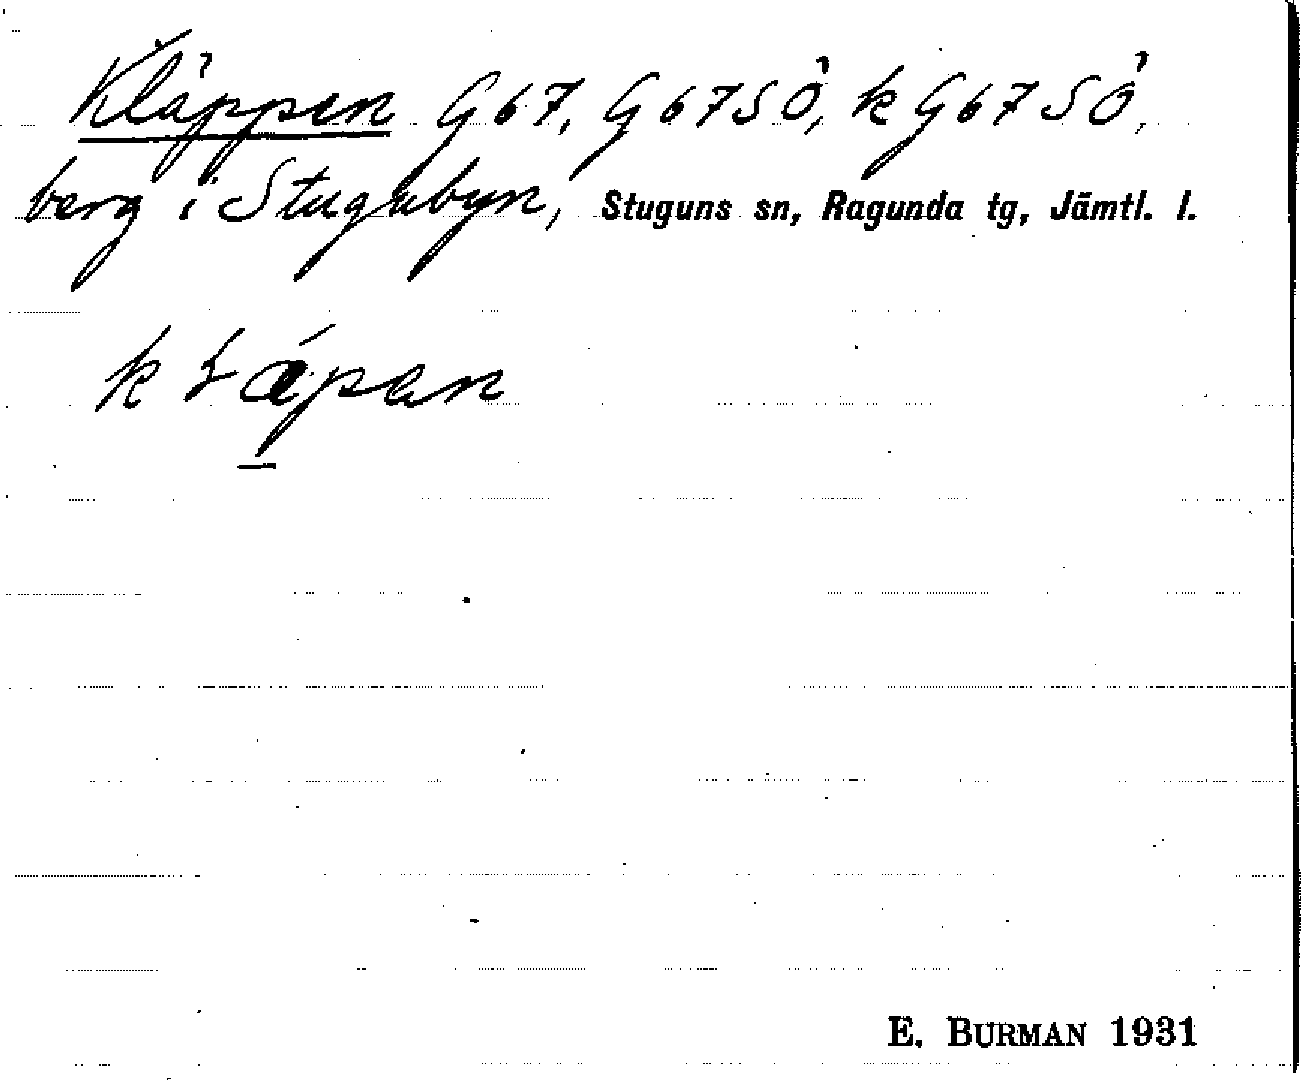 Kläppen G67, G67SÖ, k G67SÖ,
berg i Stugubyn, Stuguns sn, Ragunda tg, Jämtl. l.
E. BURMAN 1931